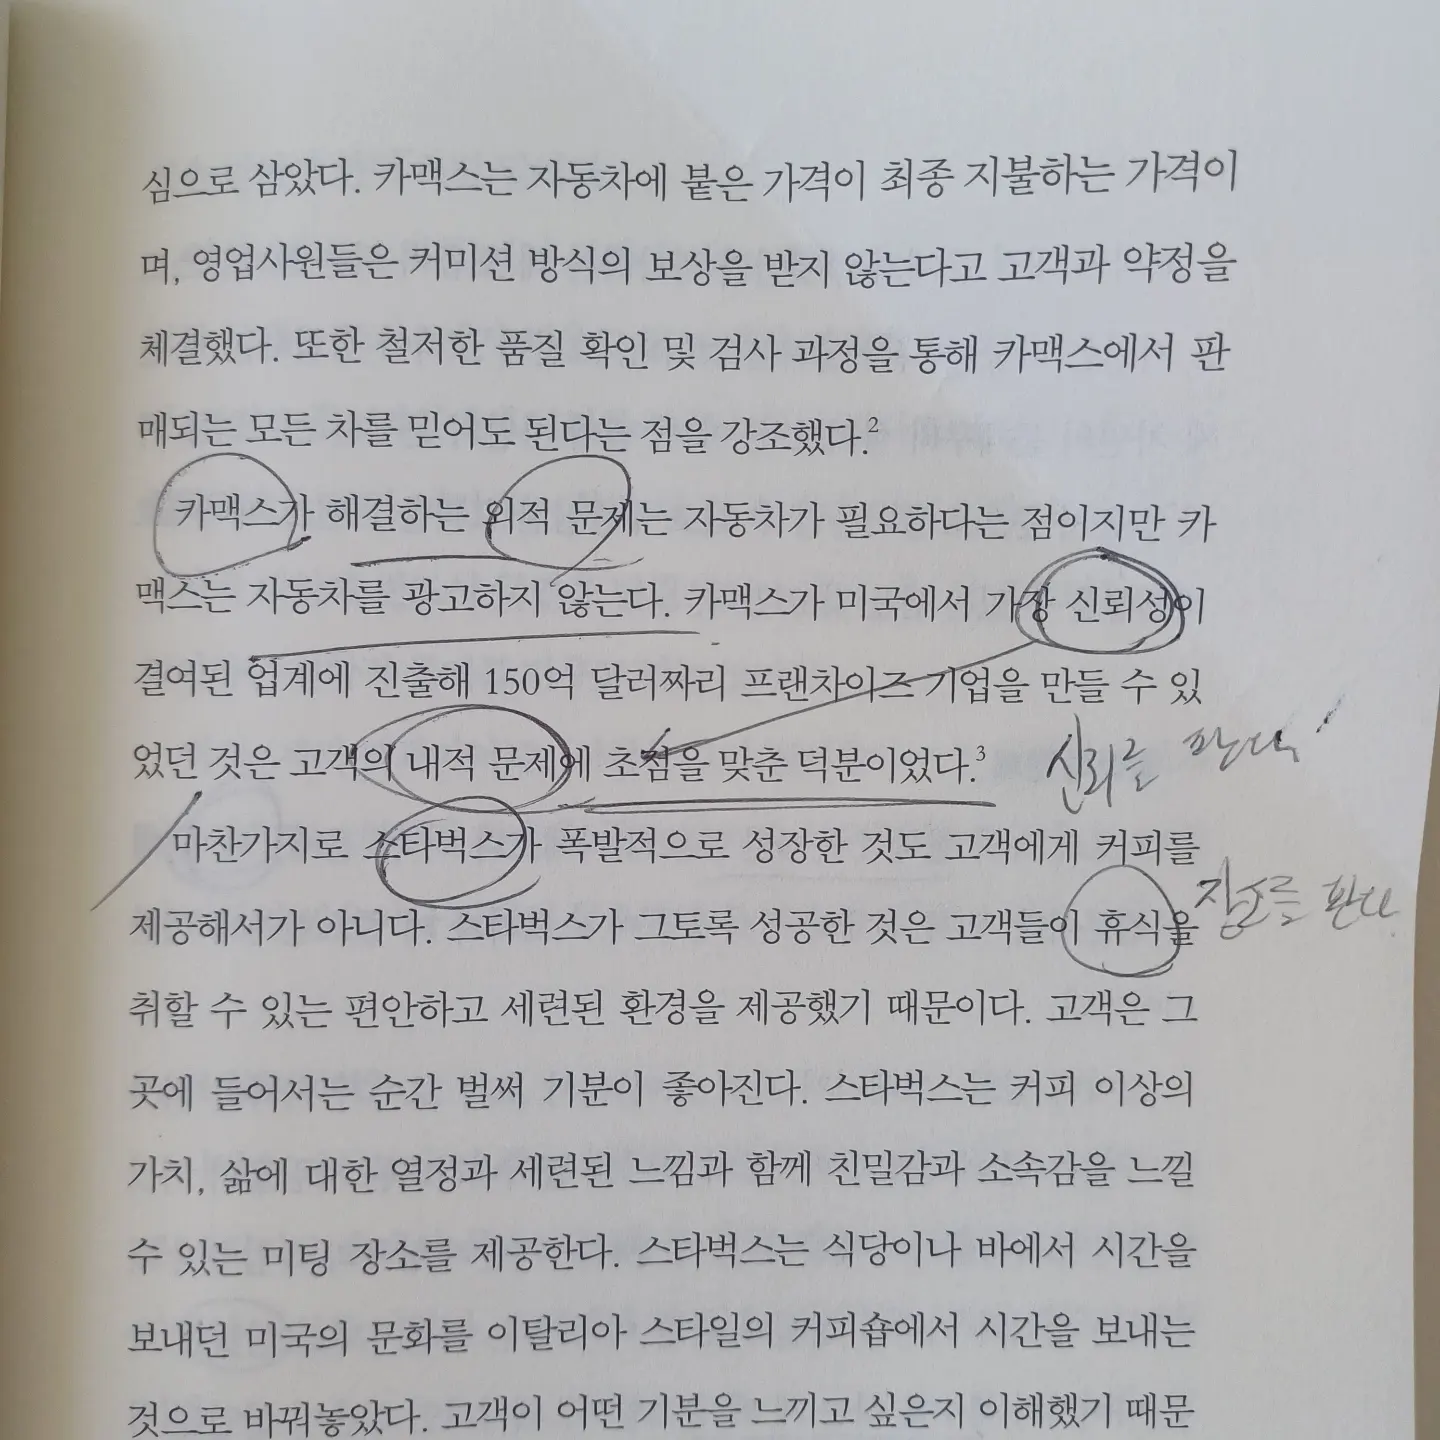 심으로 삼았다. 카맥스는 자동차에 붙은 가격이 최종 지불하는 가격이
며, 영업사원들은 커미션 방식의 보상을 받지 않는다고 고객과 약정을
체결했다. 또한 철저한 품질 확인 및 검사 과정을 통해 카맥스에서 판
매되는 모든 차를 믿어도 된다는 점을 강조했다.2
카맥스가 해결하는 외적 문제는 자동차가 필요하다는 점이지만 카
맥스는 자동차를 광고하지 않는다. 카맥스가 미국에서 가장 신뢰성이
결여된 업계에 진출해 150억 달러짜리 프랜차이즈 기업을 만들 수 있
었던 것은 고객의 내적 문제에 초점을 맞춘 덕분이었다.3
신뢰를 판다
마찬가지로 스타벅스가 폭발적으로 성장한 것도 고객에게 커피를
장소를 판다.
제공해서가 아니다. 스타벅스가 그토록 성공한 것은 고객들이 휴식을
취할 수 있는 편안하고 세련된 환경을 제공했기 때문이다. 고객은 그
곳에 들어서는 순간 벌써 기분이 좋아진다. 스타벅스는 커피 이상의
가치, 삶에 대한 열정과 세련된 느낌과 함께 친밀감과 소속감을 느낄
수 있는 미팅 장소를 제공한다. 스타벅스는 식당이나 바에서 시간을
보내던 미국의 문화를 이탈리아 스타일의 커피숍에서 시간을 보내는
것으로 바꿔놓았다. 고객이 어떤 기분을 느끼고 싶은지 이해했기 때문